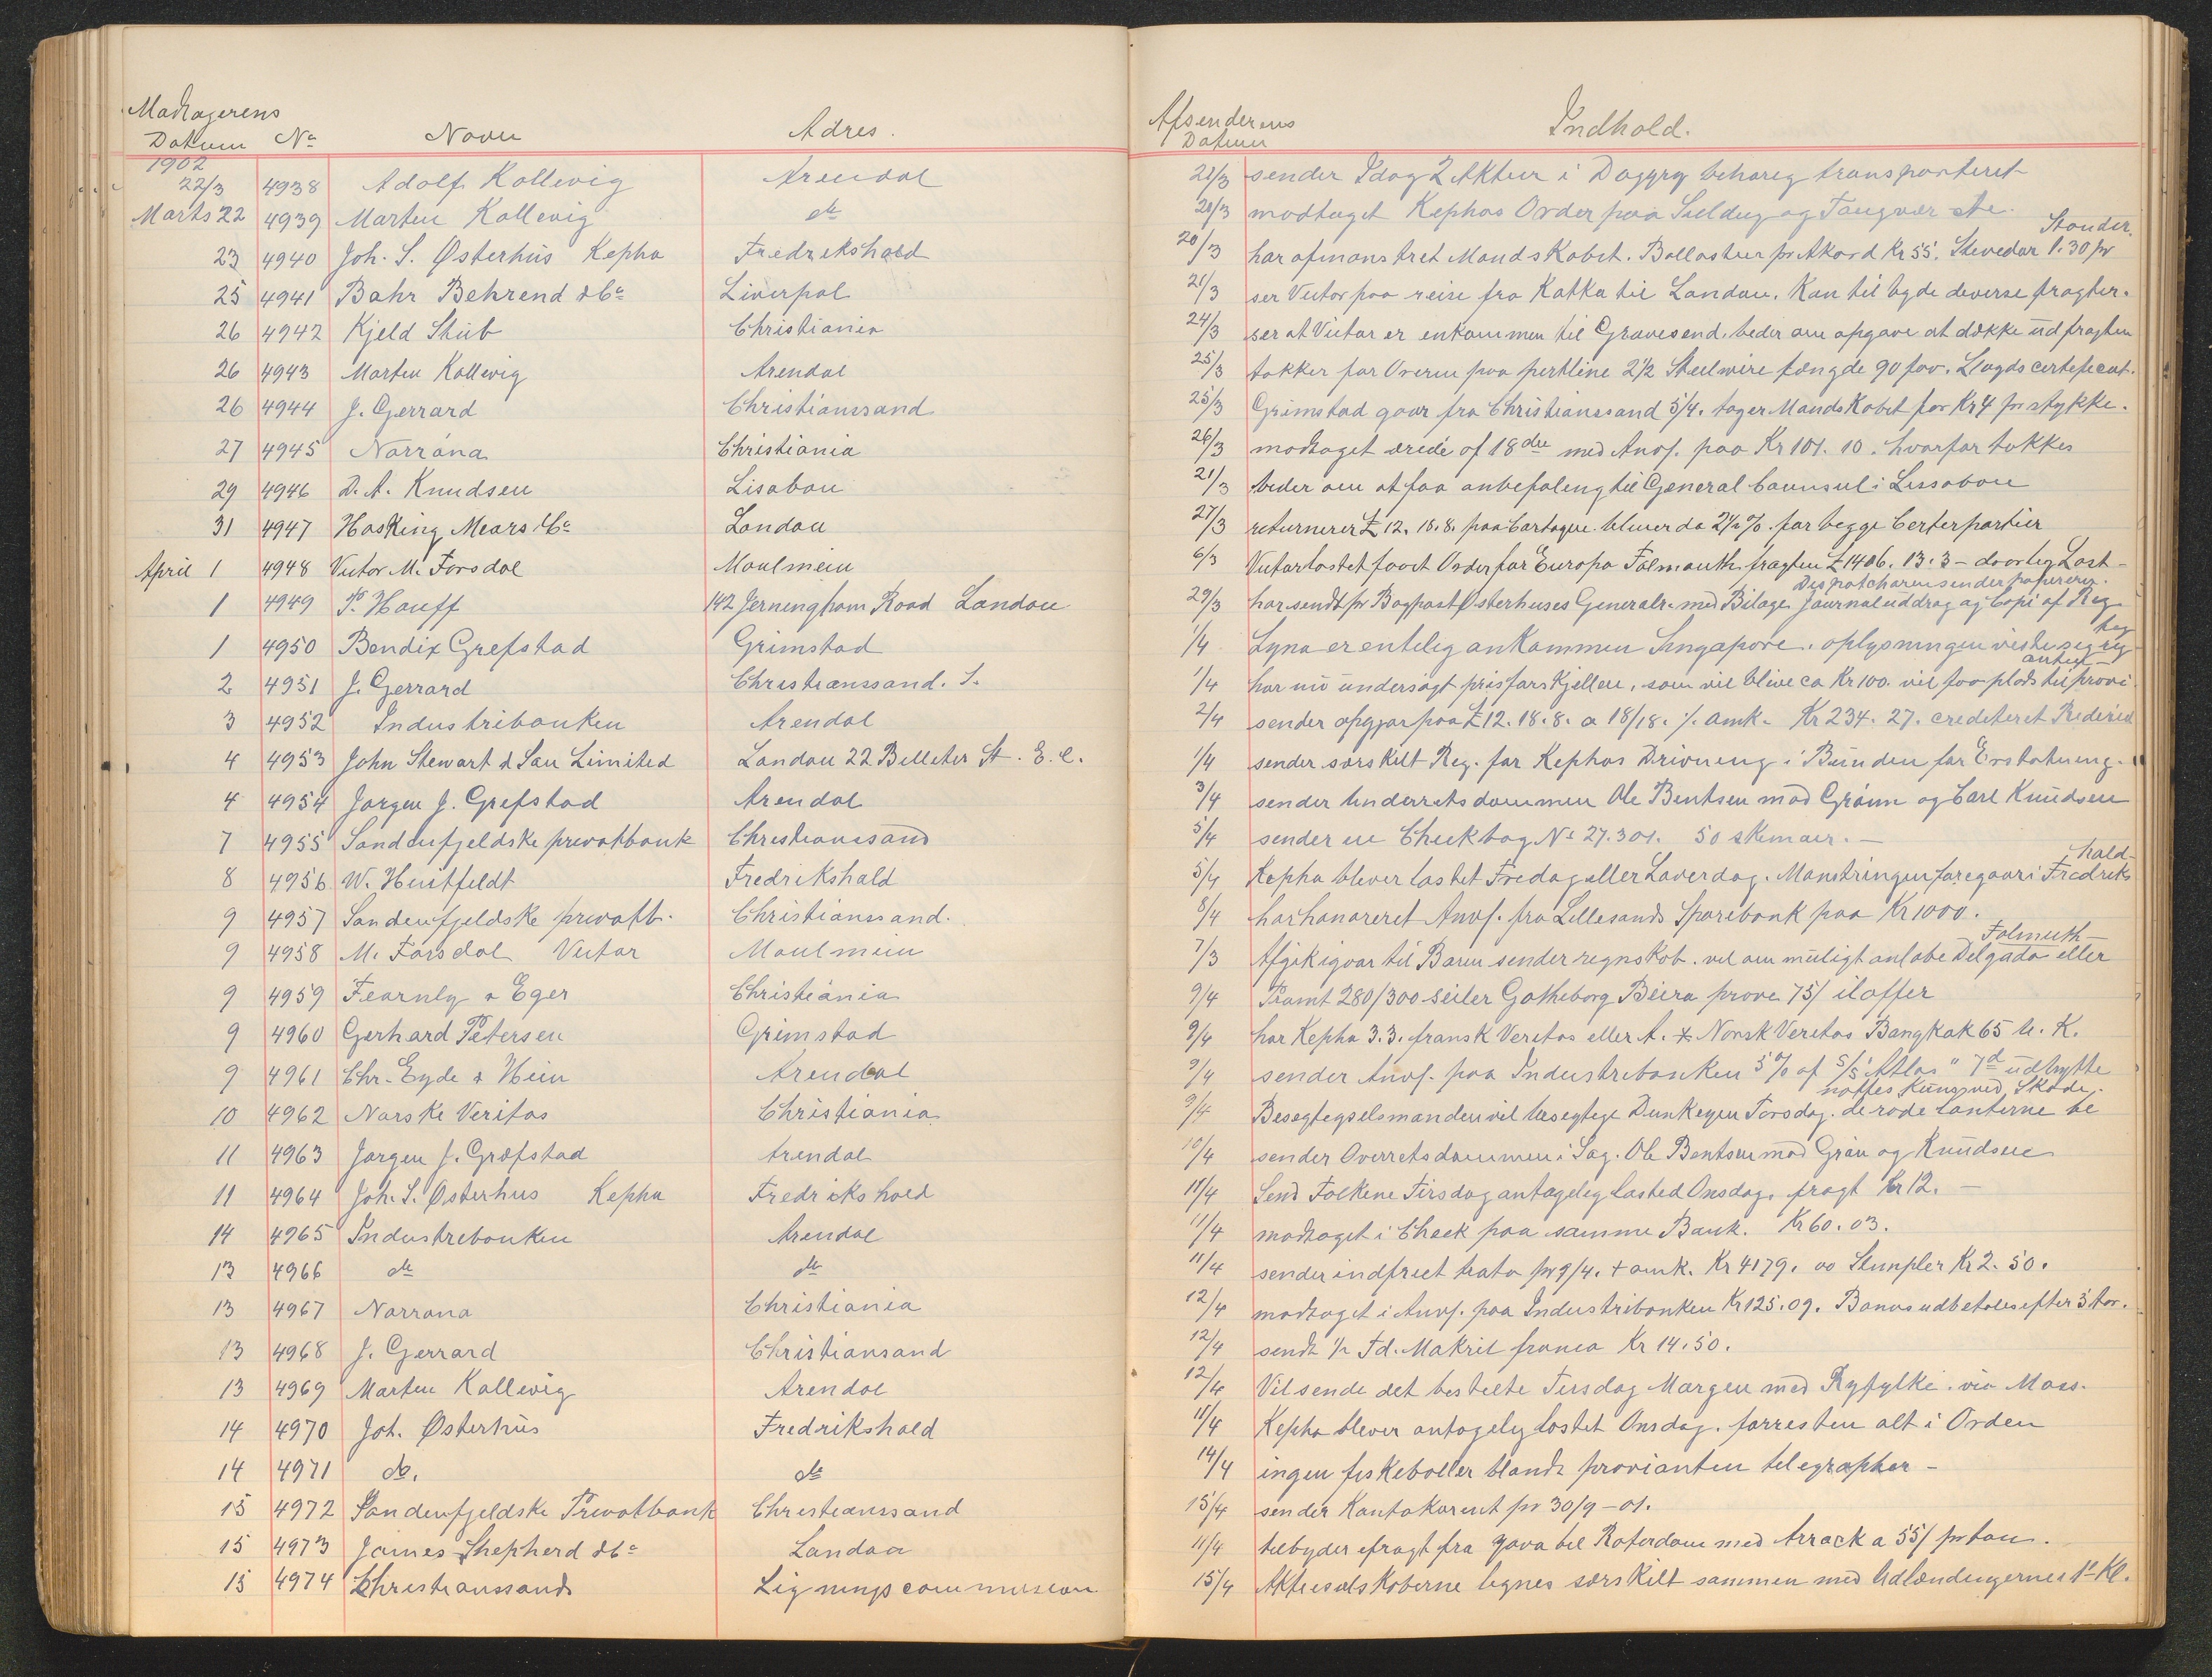 Modtagerens
Datum No Navn Adres.
1902
22/3 4938 Adolf Kallevig Arendal
Marts 22 4939 Marten Kallevig do
23 4940 Joh. S. Østerhus Kepha Fredrikshald
25 4941 Bahr Behrend & Co Liverpol
26 4942 Kjeld Stub Christiania
26 4943 Morten Kallevig Arendal
26 4944 J. Gerrard Christianssand
27 4945 Norrøna Christiania
29 4946 D. A. Knudsen Lisabon
31 4947 Hosking Mears & Co London
April 1 4948 Victor M. Forsdal Moulmein
1 4949 P. Hauff 142 Jerningham Road London
1 4950 Bendix Grefstad Grimstad
2 4951 J. Gerrard Christianssand. S.
3 4952 Industribanken Arendal
4 4953 John Stewart & Son Limited London 22 Billeter St. E. C.
4 4954 Jørgen J. Grefstad Arendal
7 4955 Søndenfjeldske privatbank Christianssand
8 4956 W. Huitfeldt Fredrikshald
9 4957 Søndenfjeldske privatb. Christianssand.
9 4958 M. Forsdal Victor Moulmein
9 4959 Fearnly & Eger Christiania
9 4960 Gerhard Petersen Grimstad
9 4961 Chr. Eyde & Hein Arendal
10 4962 Norske Veritas Christiania
11 4963 Jørgen J. Græfstad Arendal
11 4964 Joh. S. Østerhus Kepha Fredrikshald
14 4965 Industrebanken Arendal
13 4966 do do
13 4967 Norrøna Christiania
13 4968 J. Gerrard Christiansand
13 4969 Marten Kallevig Arendal
14 4970 Joh. Østerhus Fredrikshald
14 4971 do. do
15 4972 Søndenfjeldske Privatbank Christianssand
15 4973 James Shepherd & Co London
15 4974 Christianssands Ligningscommission
Afsenderens
Datum Indhold.
21/3 sender Idag 2 Aktier i behørig transporteret
20/3 modtaget Kephas Order paa Seildug og Taugvær
Stander.
20/3 har afmønstret Mandskabet. Ballasten pr Akord Kr 55. Stevedor 1.30 pr
21/3 ser Victor paa reise fra til London. Kan til byde diverse fragter.
24/3 ser at Victor er ankommen til Gravesend. beder om opgave at dække udfragten
25/3 takker for pertline 2 1/2 Steelwire længde 90 fav. Lloyds certeficat.
25/3 Grimstad gaar fra Christianssand 5/4. tager Mandskabet for Kr 4 pr stykke.
26/3 modtaget ærede af 18de med Anv. paa Kr 101. 10. hvorfor takkes
21/3 beder om at faa anbefaling til General Counsul i Lissabon
27/3 returnerer £ 12. 18. 8. paa bliver da 2 1/2 % for begge Certerpartier
6/3 Victor lastet faaet Order for Europa Falmouth. fragten £ 1406. 13. 3 - daarlig Last -
Dispatcharen sender papirerne.
29/3 har sendt pr Bogpost Østerhuses Generalr. med Bilage. Journaluddrag og Copi af Reg.
1/4 Lyna er entelig ankommen Singapore. oplysningen viste sig
antig
1/4 har nu undersøgt pris for Skjellen, som vil blive ca Kr 100. vil faa plads til provi
2/4 sender opgjør paa £ 12. 18. 8. a 18/18. % omk. Kr 234. 27. crediteret
1/4 sender særskilt Reg. for Kephas Drivning i Bunden for Erstatning.
3/4 sender Underretsdommen Ole Bentsen mod Grönn og Carl Knudsen
5/4 sender en Checkbog No 27.301. 50 skemaer. -
hald -
5/4 Kepha blever lastet Fredag eller Laverdag. Mønstringen foregaar i Fredriks
8/4 har honoreret Anv. fra Lillesands Sparebank paa Kr 1000.
Falmuth
7/3 Afgik igaar til Baren sender regnskab. vil om muligt anløbe Delgada eller
9/4 Pramt 280/300 seiler Gøtheborg Beira prøve 75/ iloffer
9/4 har Kepha 3. 3. fransk Veritas eller A. Norsk Veritas Bangkok 65 u. K.
9/4 sender Anv. paa Industrebanken 5 % af S/S "Atlas" 7d udbytte
nøttes kun ved Skøde.
9/4 Besegtegselsmanden vil besegtege Torsdag. de røde Lanterne be
10/4 sender Overretsdommen i Sag. Ole Bentsen mod Grön og Knudsen
11/4 Send Folkene Tirsdag antagelig lasted Onsdag. fragt Kr 12. -
11/4 modtaget i Check paa samme Bank. Kr 60. 03.
11/4 sender indfriet trata pr 9/4. + omk. Kr 4179. 00 Stempler Kr 2. 50.
12/4 modtaget i Anv. paa Industribanken Kr 125. 09. Bonus udbetales efter 3 tør.
12/4 sendt 1/2 Td. Makril franco Kr 14. 50.
12/4 Vil sende det bestilte Tirsdag Morgen med Ryfylke. via Moss.
11/4 Kepha blever antagelig lastet Onsdag. forresten alt i Orden
14/4 ingen fiskeboller blandt provianten telegrapher -
15/4 sender Kontokurent pr 30/9 - 01.
11/4 telbyder efragt fra Java til Roterdam med Arrack a 55/ pr ton.
15/4 Aktieselskaberne lignes særskilt sammen med Udlændingernes 1ste Kl.